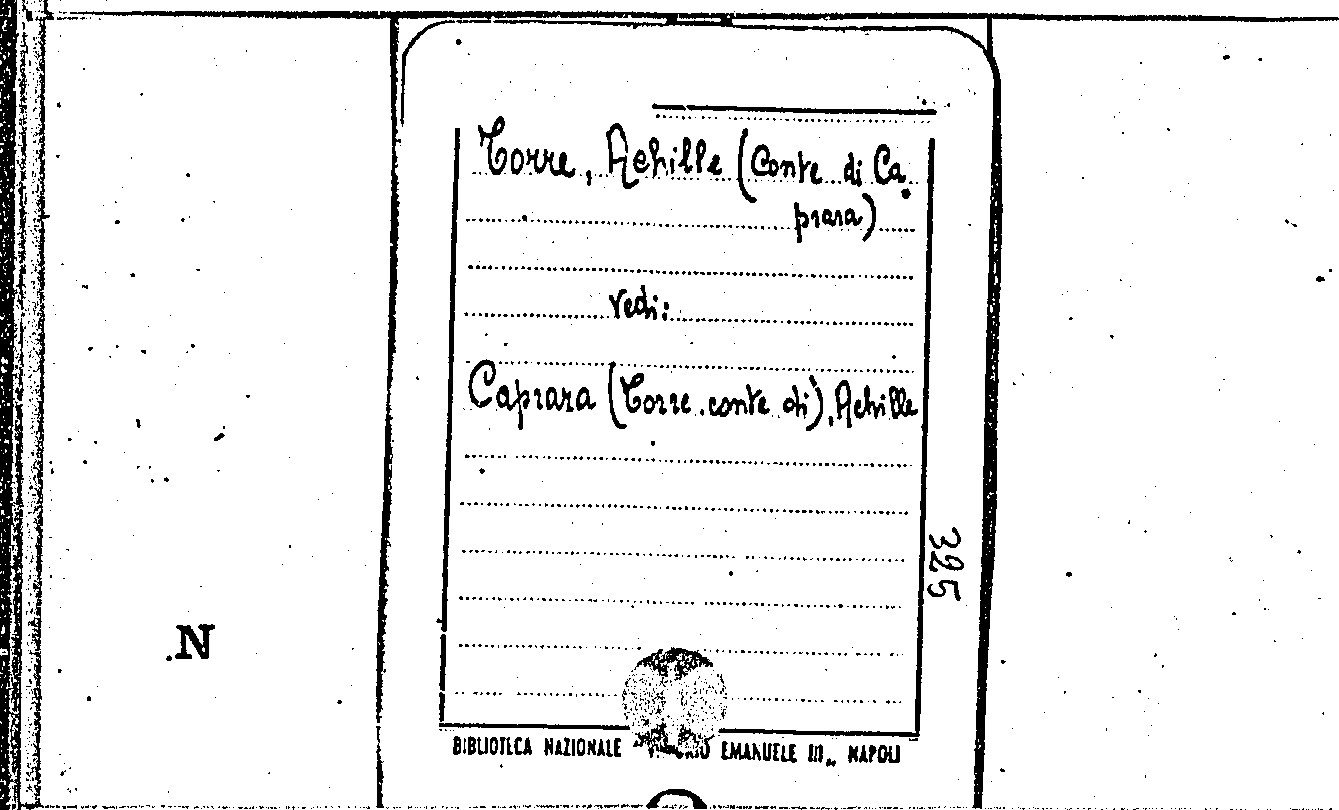 Torre, Achille (Conte di Ca
prara)
vedi:
Caprara (Torre. conte di), Achille
325
N
BIBLIOTECA NAZIONALE "VITTORIO EMANUELE III„ NAPOLI